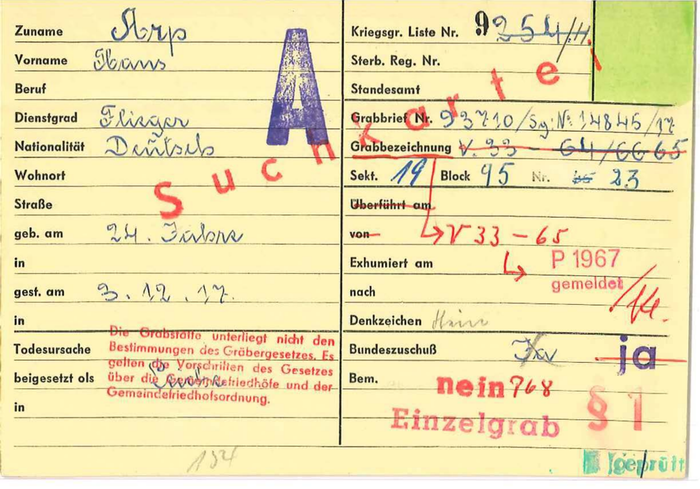 Zuname Arp
Vorname Hans
Beruf
Dienstgrad Flieger
Nationalität Deutsch
Wohnort
Straße
geb. am 24. Jahre
in
gest. am 3.12.17.
in
Todesursache
beigesetzt als
in
A
Suchkartei
Die Grabstätte unterliegt nicht den
Bestimmungen des Gräbergesetzes. Es
gelten die Vorschriften des Gesetzes
über die Gemeindefriedhöfe und der
Gemeindefriedhofsordnung.
134
Kriegsgr. Liste Nr. 9254/H.
Sterb. Reg. Nr.
Standesamt
Grabbrief Nr. 93710/Sg.Nr. 14845/17
Grabbezeichnung V. 33 - 64/66 65
Sekt. 19 Block 95 Nr. 23
Überführt am
von V 33 - 65
Exhumiert am P 1967
gemeldet
nach
Denkzeichen
Bundeszuschuß Ja ja
Bem. nein 768 § 1
Einzelgrab
geprüft